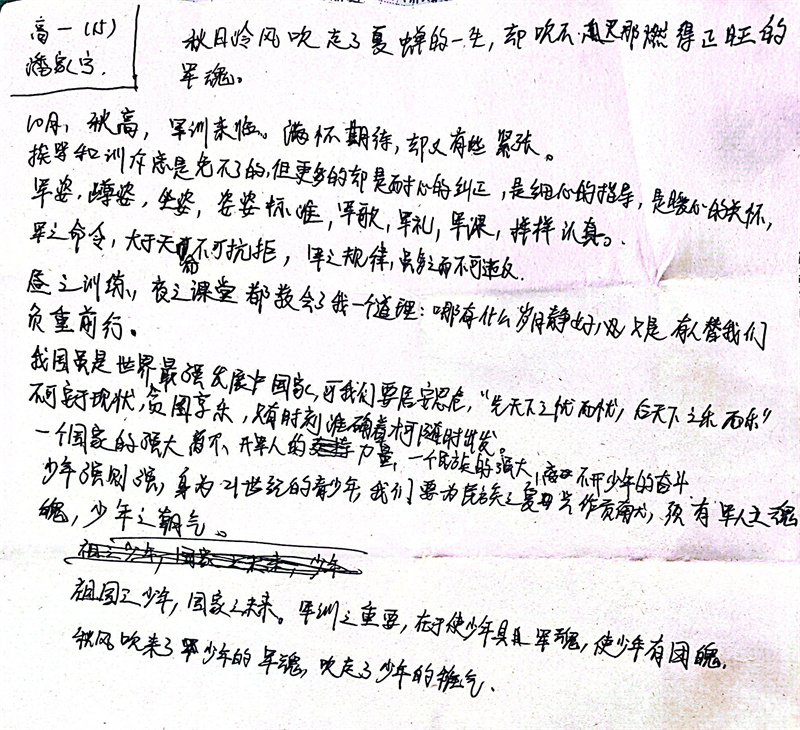 高一(15)
潘家宇
秋日冷风吹走了夏蝉的一生，却吹不灭那燃得正旺的
军魂。
10月，秋高，军训来临。满怀期待，却又有些紧张。
挨骂和训斥总是免不了的，但更多的却是耐心的纠正，是细心的指导，是暖心的关怀，
军姿，蹲姿，坐姿，姿姿标准，军歌，军礼，军课，样样认真。
军之命令，大于天 不可抗拒，军之规律，虽 而不可违反.
昼之训练，夜之课堂都教会了我一个道理：哪有什么岁月静好，只是有人替我们
负重前行。
我国虽是世界最强发展中国家，可我们要居安思危，“先天下之忧而忧，后天下之乐而乐”
不可安于现状，贪图享乐，只有时刻准 随时出发。
一个国家的强大离不开军人的力量，一个民族的强大，离不开少年的奋斗
少年强则强，身为21世纪的青少年，我们要为民族之复兴作贡献，须有军人之魂
魄，少年之朝气。
祖国之少年，国家之未来。军训之重要，在于使少年具 军魂，使少年有团魄.
秋风吹来了少年的军魂，吹走了少年的稚气.